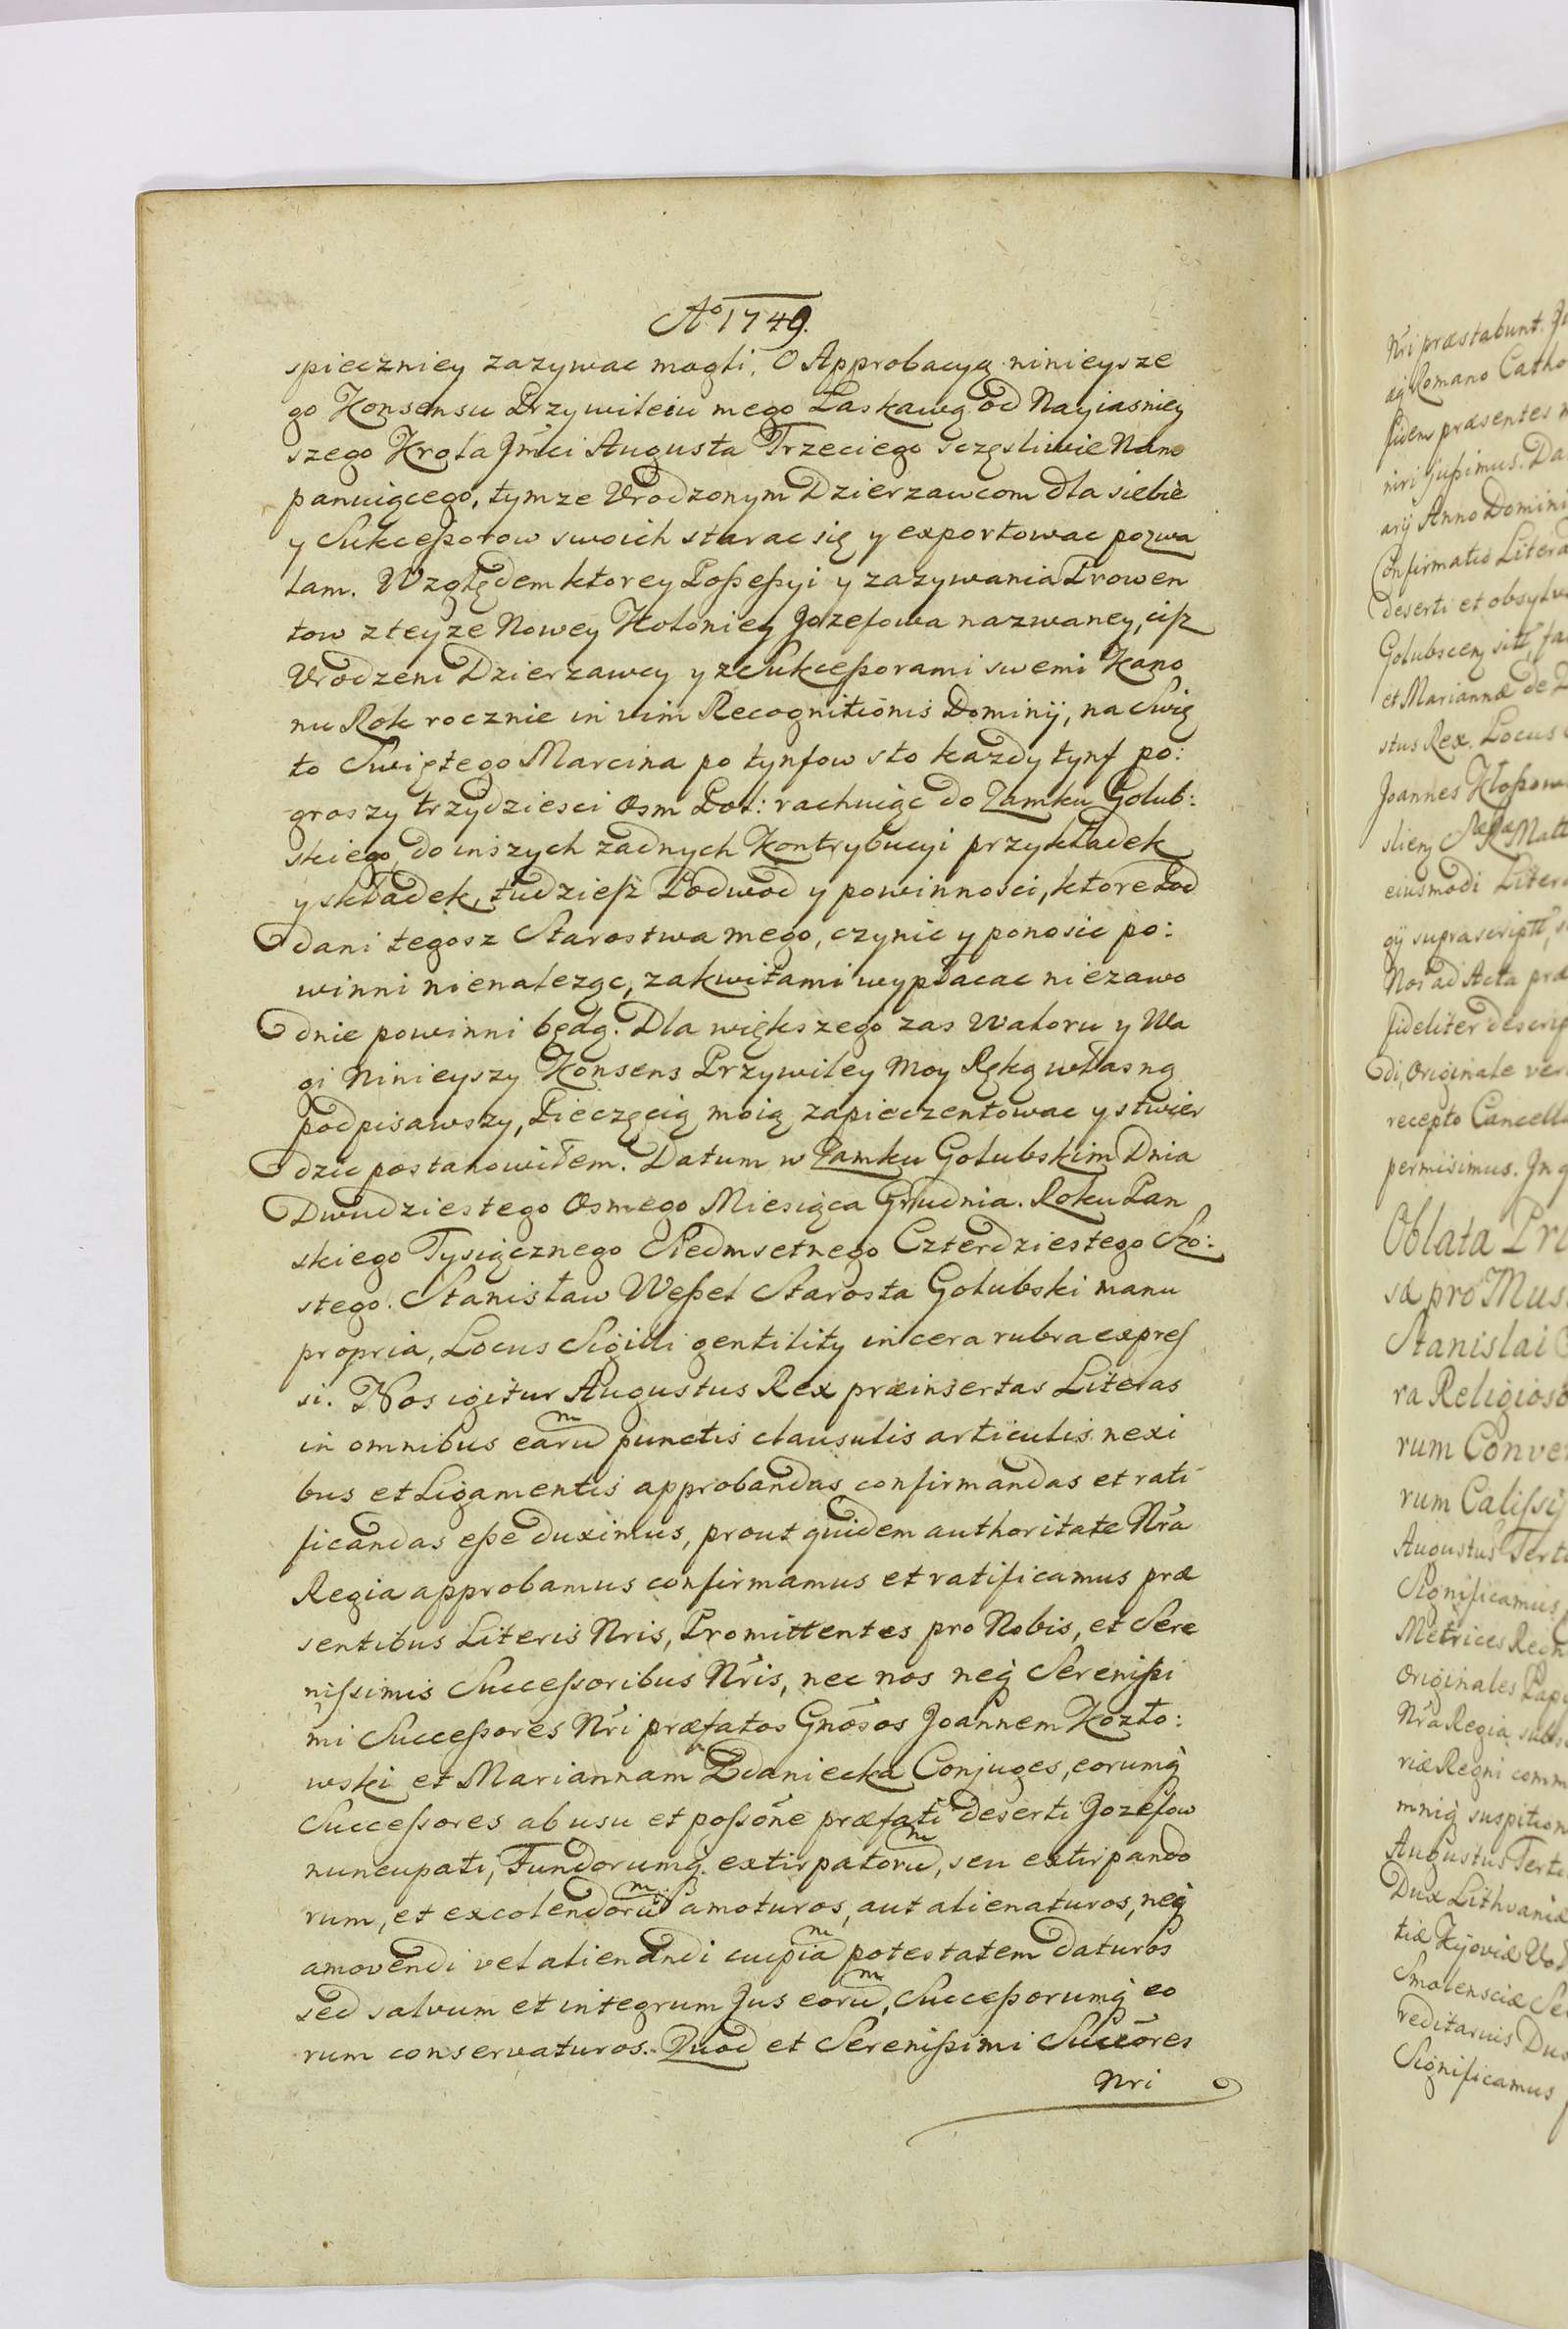 Aº 1749.
spieczniey zazywac mogli, O Approbacyą ninieysze
go Konsensu Przywileiu mego Łaskawą od Nayiasniey
szego Krola Jmci Augusta Trzeciego sczęsliwie Nam
panuiącego, tymze Urodzonym Dzierzawcom dla siebie
y Sukceßorow swoich starac się y exportowac pozwa
lam. Względem ktorey Poßeßyi y zazywania Prowen
tow z teyze Nowey Koloniey Jozefowa nazwaney, ciß
Urodzeni Dzierzawcy y z Sukceßorami swemi Kano
nu Rok rocznie in vim Recognitionis Dominij, na Swię
to Swiętego Marcina po tynfow sto kazdy tynf po:
groszy trzydziesci osm Pol: rachuiąc do Zamku Golub:
skiego, do inszych zadnych Kontrybucyi przykładek
y składek, tudzieß Podwod y powinnosci, ktore Pod
dani tegosz Starostwa mego, czynic y ponosic po:
winni nienaleząc, zakwitami wypłacac niezawo
dnie powinni będą. Dla większego zas Waloru y Wa
gi Ninieyszy Konsens Przywiley moy Ręką własną
podpisawszy, Pieczęcią moią zapieczentowac y stwier
dzic postanowiłem. Datum w Zamku Golubskim Dnia
Dwudziestego Osmego Miesiąca Grudnia. Roku Pan
skiego Tysiącznego Siedmsetnego Czterdziestego Szo:
stego. Stanisław Weßel Starosta Golubski manu
propria, Locus Sigilli gentility in cera rubra expres
si. Nos igitur Augustus Rex præinsertas Literas
in omnibus earum punctis clausulis articulis nexi
bus et Ligamentis approbandas confirmandas et rati
ficandas eße duximus, prout quidem authoritate Nra
Regia approbamus confirmamus et ratificamus præ
sentibus Literis Nris, Promittentes pro Nobis, et Sere
nissimis Successoribus Nris, nec nos neq Serenißi
mi Succeßores Nri præfatos Gnosos Joannem Kozło:
wski et Mariannam Zdaniecka Conjuges, eorumq
Successores ab usu et possone præfati deserti Jozefow
nuncupati, Fundorumq. extirpatorum, seu extirpando
rum, et excolendorum amoturos, aut alienaturos, neq
amovendi vel alienandi cuipiam potestatem daturos
sed salvum et integrum Jus eorum, Succeßorumq eo
rum conservaturos. Quod et Serenißimi Succores
Nri
Nri præstabunt. Ju
aq Romano Catho
fidem præsentes
niri jußimus. Da
arij Anno Domini
Confirmatio Litera
deserti et obsylv
et Mariannæ de Z
stus Rex. Locus
Joannes Kłoßow
eiusmodi Liter
Nos ad Acta præ
fideliter descrip
di, Originale ver
recepto Cancella
permisimus. In q
Oblata Pri
sæ pro Mus
Stanislai
ra Religioso
rum Conve
rum Calissij
Augustus Terti
Significamus
Metrices Regni
Originales Papi
Nra Regia subs
riæ Regni comm
mniq suspition
Augustus Terti
Dux Lithvaniæ
tiæ Kijoviæ Vo
Smolensciæ Se
reditarius Dux
Significamus